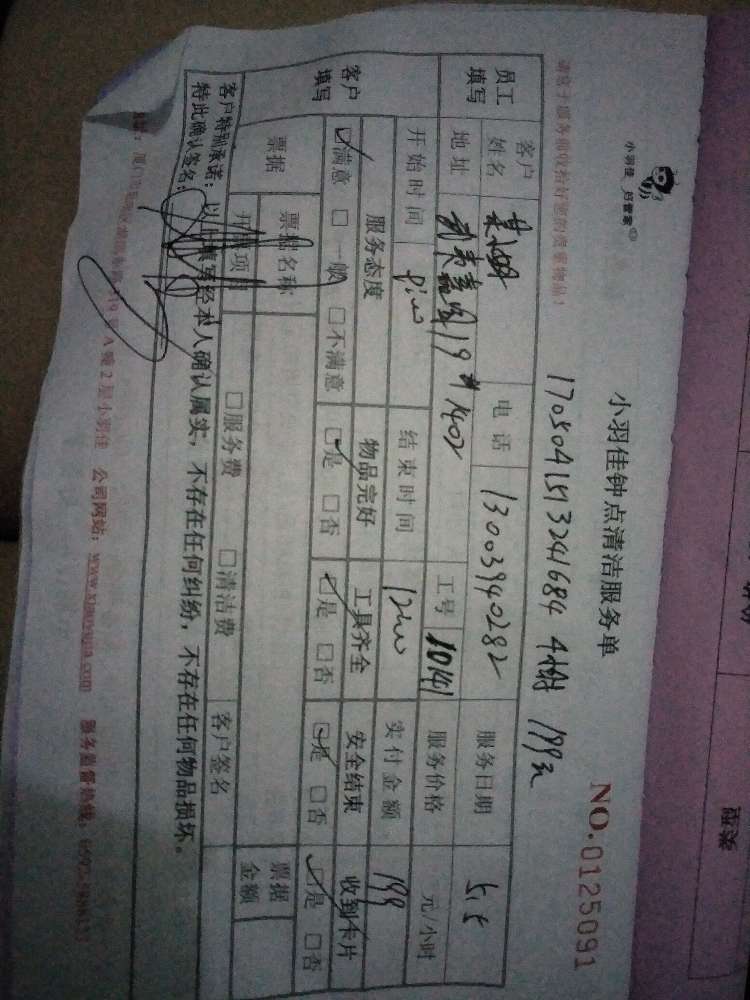 小羽佳 好管家
小羽佳钟点清洁服务单
NO.0125091
1705041513241684 4小时 199元
请客户服务前收拾好您的贵重物品！
员工填写
客户姓名
电话 13003940282
服务日期 5.5
地址 19# 1402
工号 10141
服务价格 元/小时
开始时间
结束时间
实付金额 199
客户填写
服务态度 物品完好 工具齐全 安全结束 收到卡片
☑满意 □一般 □不满意 ☑是 □否 ☑是 □否 ☑是 □否 ☑是 □否
票据
票据名称
开票项目 □服务费 □清洁费 客户签名
票据金额
客户特别承诺：以上填写经本人确认属实，不存在任何纠纷，不存在任何物品损坏。
特此确认签名：
A幢2层小羽佳 公司网站：www.xiaoyujia.com 服务监督热线：